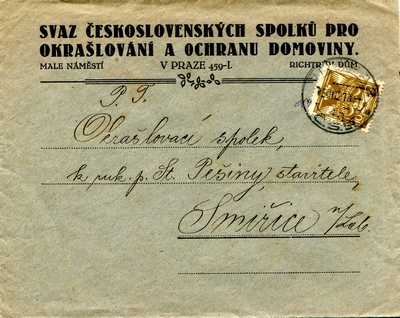 SVAZ ČESKOSLOVENSKÝCH SPOLKŮ PRO
OKRAŠLOVÁNÍ A OCHRANU DOMOVINY.
MALE NÁMĚSTÍ V PRAZE 459-I. RICHTRŮV DŮM
P. T.
Okrašlovací spolek,
k ruk. p. St. Pešiny, stavitele,
Smiřice n/Lab.